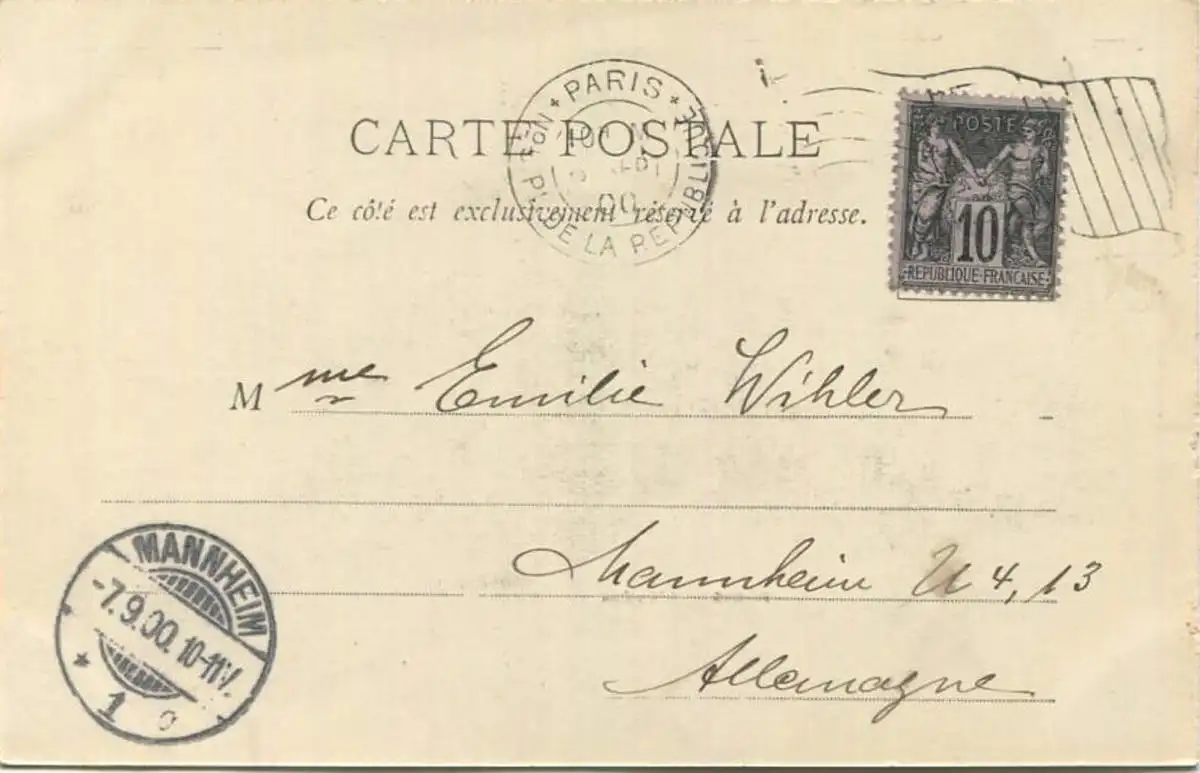 CARTE POSTALE
Ce côté est exclusivement réservé à l'adresse.
PARIS
DE LA REPUBLIQUE
00
POSTE
10
REPUBLIQUE FRANÇAISE
Mme Emilie Wihler
Mannheim U 4, 13
Allemagne
MANNHEIM
-7.9.00.10-11V.
1